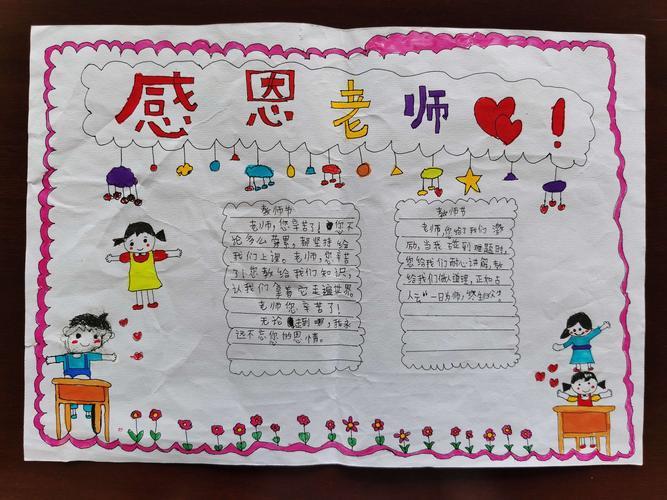 感恩老师!
教师节
老师,您辛苦了!您不
论多么劳累,都坚持给
我们上课。老师,您辛苦
了!您教给我们知识,
让我们拿着它走遍世界。
老师您辛苦了!
无论走到哪,我永
远不忘您的恩情。
教师节
老师,您给了我们激
励,当我碰到难题时,
您给我们耐心讲解,教
给我们做人道理,正如古
人云“一日为师,终生